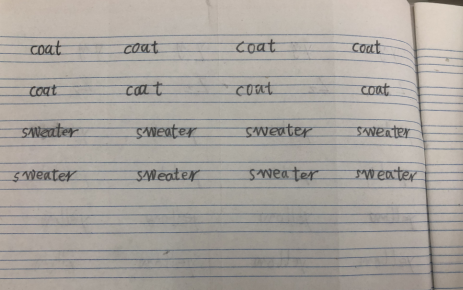 coat coat coat coat
coat coat coat coat
sweater sweater sweater sweater
sweater sweater sweater sweater